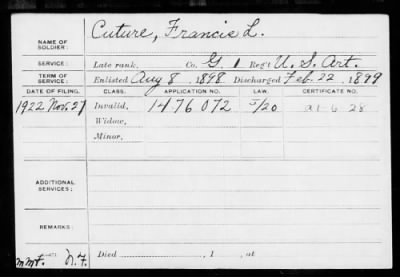 NAME OF SOLDIER: Cuture, Francis L.
SERVICE: Late rank, Co. G 1 Reg't U. S. Art.
TERM OF SERVICE: Enlisted Aug 8, 1898 Discharged Feb. 22, 1899
DATE OF FILING. CLASS. APPLICATION NO. LAW. CERTIFICATE NO.
1922 Nov. 27 Invalid, 1476 072 5/20 a1-6-28
Widow,
Minor,
ADDITIONAL SERVICES:
REMARKS:
Died , 1 , at